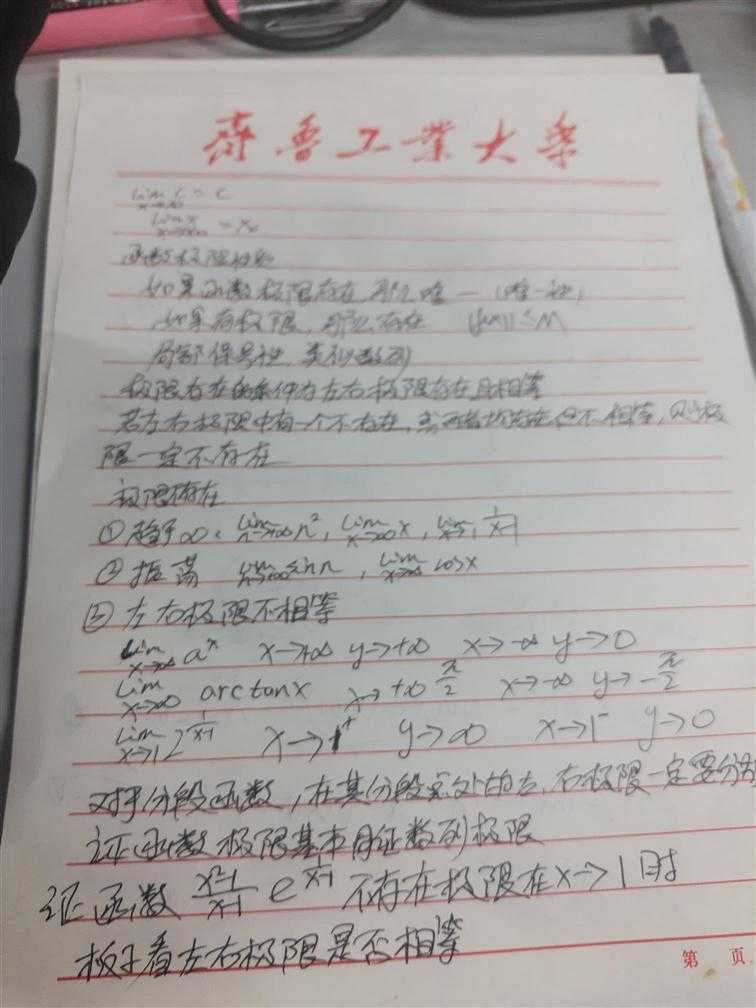 齐鲁工业大学
lim x→x₀ C = C
lim x→x₀ x = x₀
函数极限性质
如果函数极限存在 那么唯一 (唯一性)
如果有极限，那么存在 |f(x)|≤M
局部保号性 类似数列
极限存在的条件为左右极限存在且相等
若左右极限中有一个不存在，或两者均存在但不相等，则极
限一定不存在
极限存在
① 趋于∞ lim n→∞ n², lim x→∞ x, lim x→1 1/(x-1)
② 振荡 lim n→∞ sin n, lim x→∞ cosx
③ 左右极限不相等
lim x→∞ aˣ x→+∞ y→+∞ x→-∞ y→0
lim x→∞ arctanx x→+∞ π/2 x→-∞ y→-π/2
lim x→1 2^(1/(x-1)) x→1⁺ y→∞ x→1⁻ y→0
对于分段函数，在其分段点处的左、右极限一定要分
证函数极限基本同证数列极限
证函数 (x²-1)/(x-1) e^(1/(x-1)) 不存在极限在x→1时
板子看左右极限是否相等
第 页